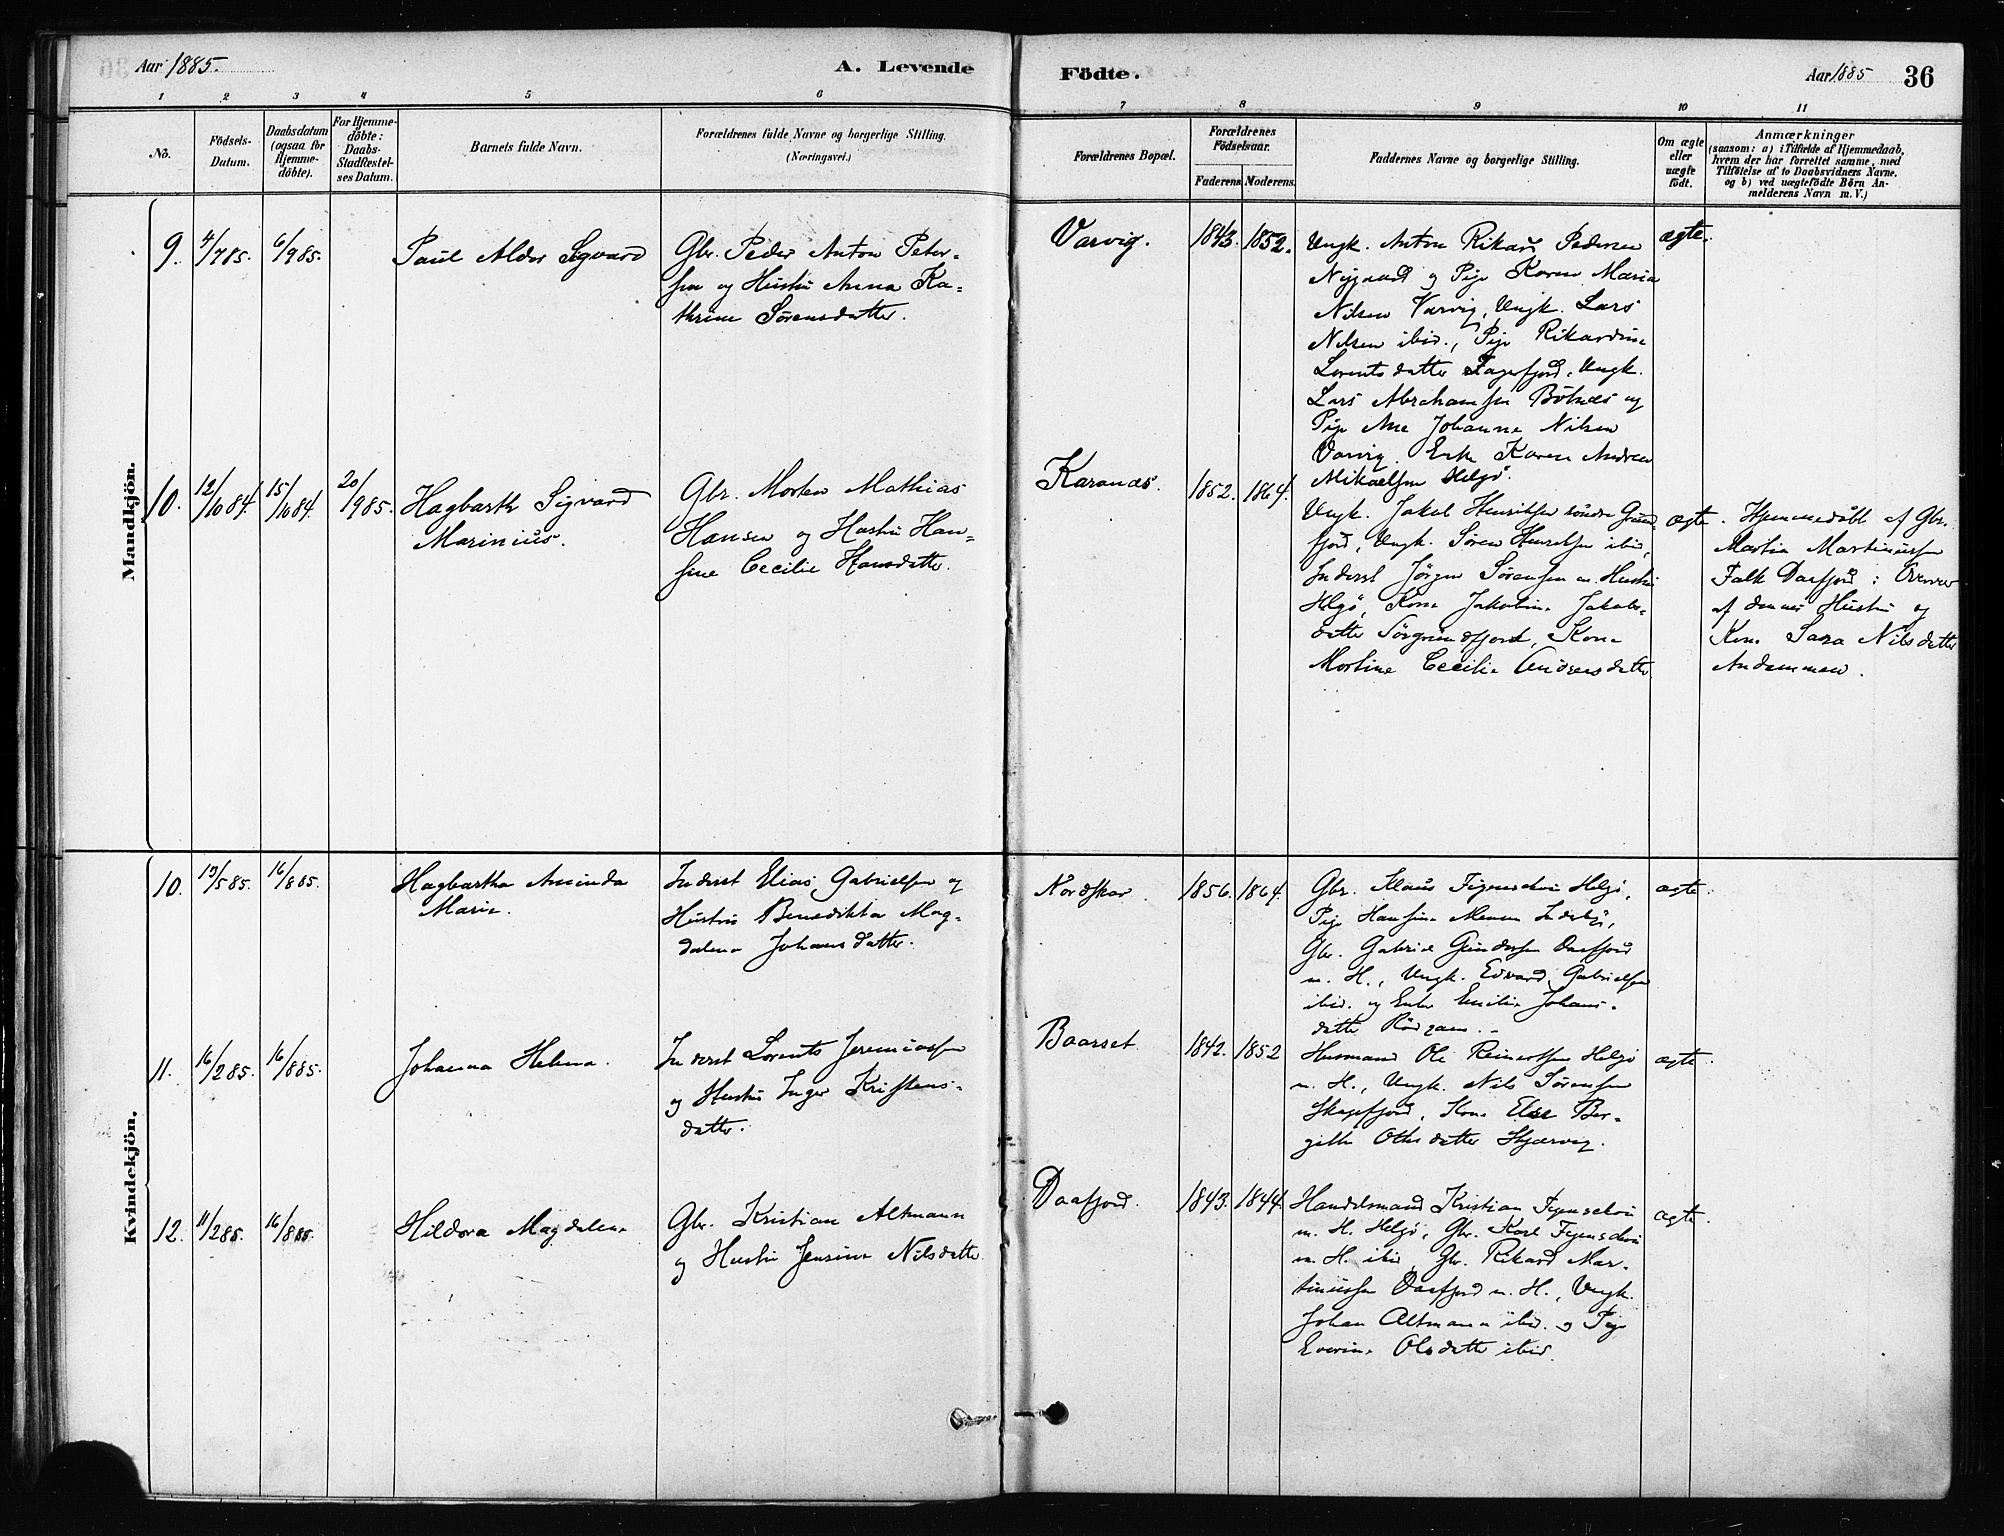 Aar 1885.
A. Levende
Födte.
Aar 1885
36
1 2 3 4 5 6
7 8 9 10 11
No.
Födsels-
Datum.
Daabsdatum
(ogsaa for
Hjemme-
döbte).
For Hjemme-
döbte:
Daabs-
Stadfestel-
ses Datum.
Barnets fulde Navn.
Forældrenes fulde Navne og borgerlige Stilling.
(Næringsvei.)
Forældrenes Bopæl.
Forældrenes
Födselsaar.
Faderens
Moderens.
Faddernes Navne og borgerlige Stilling.
Om ægte
eller
uægte
födt.
Anmærkninger
(saasom: a) i Tilfælde af Hjemmedaab,
hvem der har forrettet samme, med
Tilföielse af to Daabsvidners Navne.
og b) ved uægtefödte Börn An-
melderens Navn m. V.)
Mandkjön.
9. 4/785. 6/985.
Paul Aldor Sigvard
Gbr. Peder Anton Peter-
sen og Hustru Anna Ka-
thrine Sørensdatter.
Varvig.
1843. 1852.
Ungk. Anton Rikard Pedersen
Nygaard og Pige Karen Maria
Nilsen Varvig, Ungk. Lars
Nilsen ibid., Pige Rikardine
Lorentsdatter Fagerfjord, Ungk.
Lars Abrahamsen Bötnes og
Pige Ane Johanna Nilsen
Varvig. Enke Karen Andrea
Mikaelsen Helgö.
ægte.
10. 12/1084. 15/1084. 20/985.
Hagbarth Sigvard
Marinius.
Gbr. Morten Mathias
Hansen og Hustru Han-
sine Cecilie Hansdatter.
Karanes.
1852. 1864.
Ungk. Jakob Henriksen söndre Grund-
fjord, Ungk. Sören Henriksen ibid,
Inderst Jörgen Sörensen m. Hustru
Helgö, Kone Jakobine Jakobs-
datter Sörgrundfjord, Kone
Martine Cecilie Andreasdatter
ægte.
Hjemmedöbt af Gbr.
Martin Martinussen
Falk Daafjord i Overvær
af dennes Hustru og
Kone Sara Nilsdatter
Andammen.
Kvindekjön.
10. 13/585. 16/885.
Hagbartha Aminda
Marie.
Inderst Elias Gabrielsen og
Hustru Benedikta Mag-
dalena Johansdatter.
Nordskar.
1856. 1864.
Gbr. Klaus Figenschou Helgö,
Pige Hansine
Gbr. Gabriel Gundersen Daafjord
m. H., Ungk. Edvard Gabrielsen
ibid. og Enke Emilie Johans-
datter
ægte
11. 16/285. 16/885.
Johanna Helena.
Inderst Lorents Jeremiassen
og Hustru Inger Kristens-
datter.
Baarset
1842. 1852
Husmand Ole Reinertsen Helgö
m. H., Ungk. Nils Sörensen
Skagefjord, Kone Else Ber-
gitte Ottesdatter Skjærvig.
ægte
12. 11/285. 16/885.
Hildora Magdalena
Gbr. Kristian Altmann
og Hustru Jensine Nilsdatter
Daafjord.
1843. 1844
Handelsmand Kristian Figenschou
m. H. Helgö, Gbr. Karl Figenschou
m. H. ibid, Gbr. Rikard Mar-
tinussen Daafjord m. H., Ungk.
Johan Altmann ibid. og Pige
Everine Olsdatter ibid.
ægte.